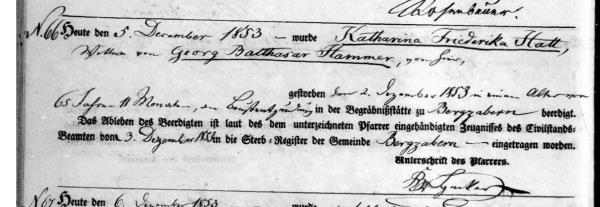 Rosenbauer.
N. 66 Heute den 5. December 1853 – wurde Katharina Friederika Hatt,
Wittwe von Georg Balthasar Hammer, von hier,
gestorben den 2. Dezember 1853 in einem Alter von
65 Jahren 11 Monaten, an in der Begräbnißstätte zu Bergzabern beerdigt.
Das Ableben des Beerdigten ist laut des dem unterzeichneten Pfarrer eingehändigten Zeugnisses des Civilstands-
Beamten vom 3. Dezember 1853 in die Sterb-Register der Gemeinde Bergzabern – eingetragen worden.
Unterschrift des Pfarrers.
N. 67 Heute den 6. December 1853 – wurde